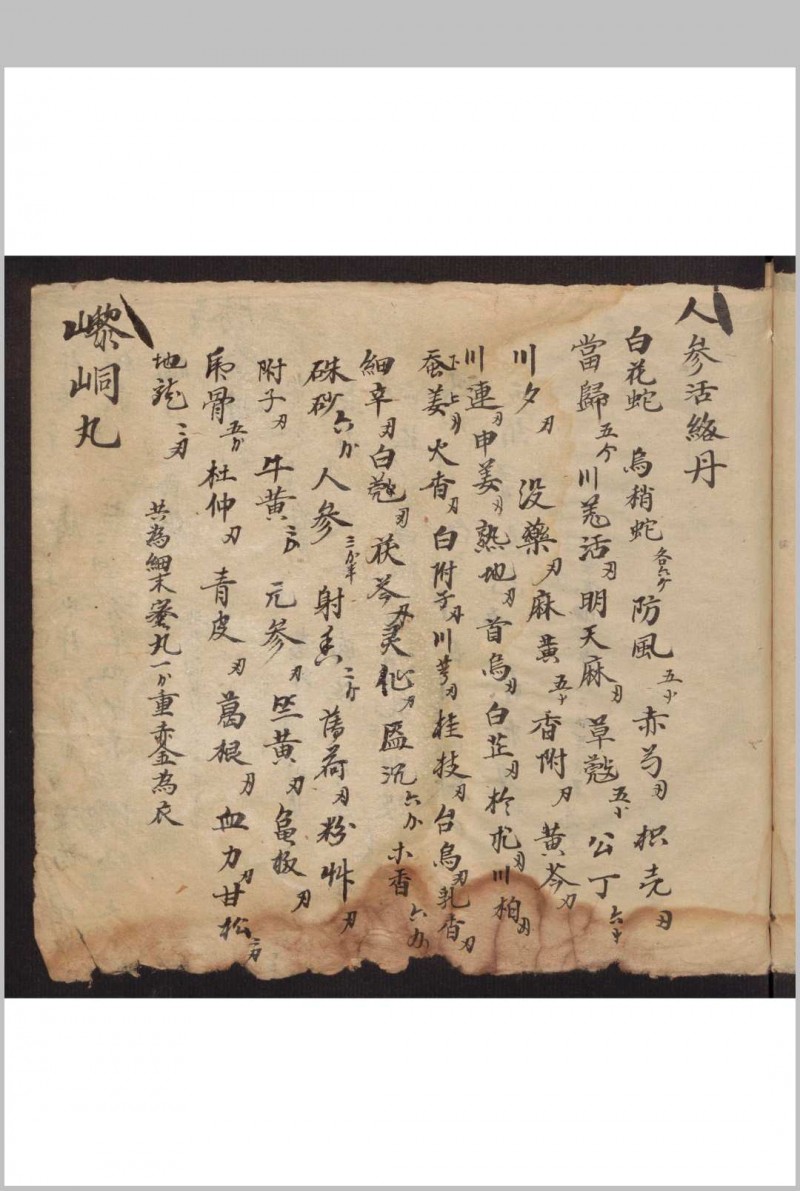 人參活絡丹
白花蛇 烏稍蛇各六个 防風五个 赤芍刃 枳壳刃
當歸五个 川羌活刃 明天麻刃 草蔻五个 公丁六个
川夕刃 没藥刃 麻黄五个 香附刃 黄芩刃
川連刃 申姜刃 熟地刃 首烏刃 白芷刃 於朮刃 川柏刃
蚕姜 上下刃 火香刃 白附子刃 川芎刃 桂枝刃 台烏刃 乳香刃
細辛刃 白蔻刃 茯苓刃 灵仙刃 沉六分 木香六分
硃砂六分 人參三分半 射香二个 薄荷刃 粉艸刃
附子刃 牛黄二分 元參刃 黄刃 龜板刃
虎骨五分 杜仲刃 青皮刃 葛根刃 血力刃 甘松二刃
地龍二刃 共為細末蜜丸一分重赤金為衣
㠟峒丸